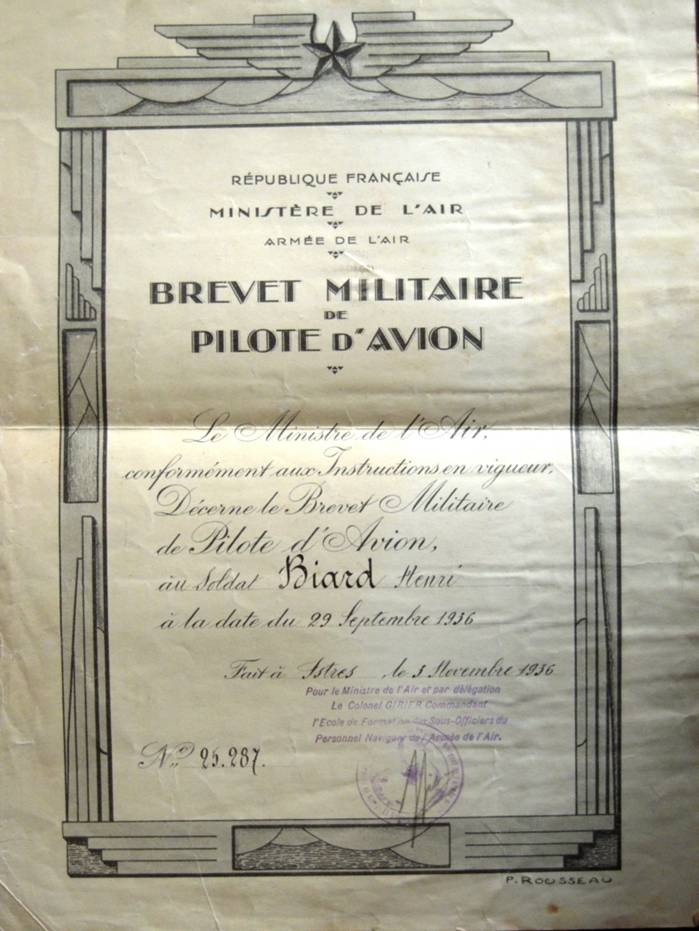 RÉPUBLIQUE FRANÇAISE
MINISTÈRE DE L'AIR
ARMÉE DE L'AIR
BREVET MILITAIRE
DE
PILOTE D'AVION
Le Ministre de l'Air,
conformément aux Instructions en vigueur,
Décerne le Brevet Militaire
de Pilote d'Avion,
au Soldat Biard Henri
à la date du 29 Septembre 1936
Fait à Istres, le 3 Novembre 1936
Pour le Ministre de l'Air et par délégation
Le Colonel GIRIER Commandant
l'Ecole de Formation des Sous-Officiers du
Personnel Navigant de l'Armée de l'Air.
No 25.287.
P. ROUSSEAU